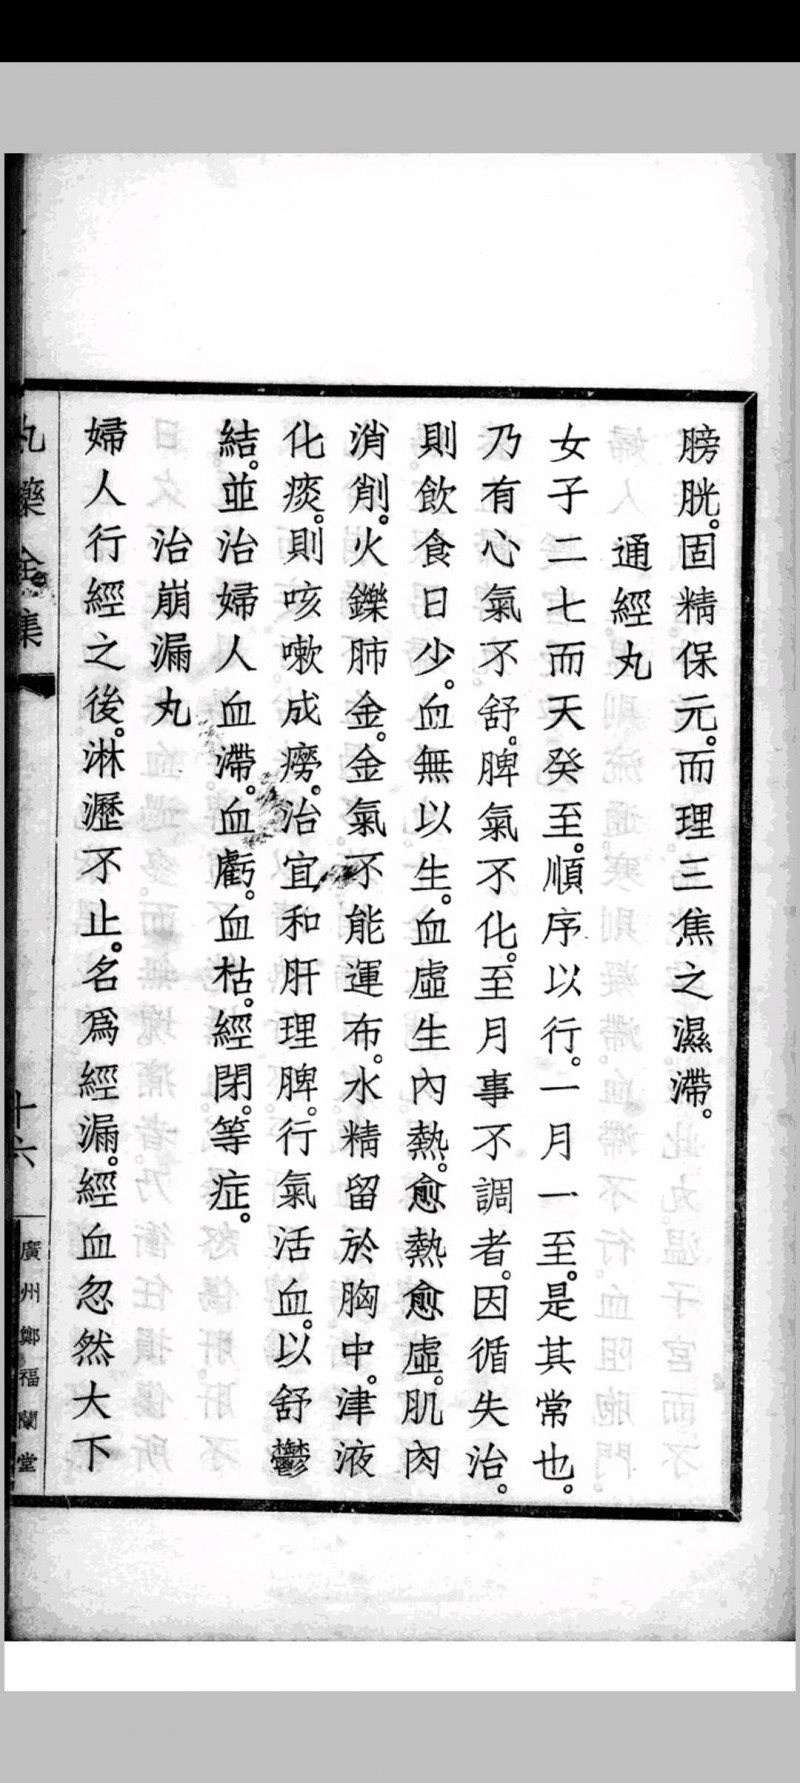 膀胱。固精保元。而理三焦之濕滯。
通經丸
女子二七而天癸至。順序以行。一月一至。是其常也。
乃有心氣不舒。脾氣不化。至月事不調者。因循失治。
則飲食日少。血無以生。血虛生內熱。愈熱愈虛。肌肉
消削。火鑠肺金。金氣不能運布。水精留於胸中。津液
化痰。則咳嗽成癆。治宜和肝理脾。行氣活血。以舒鬱
結。並治婦人血滯。血虧。血枯。經閉。等症。
治崩漏丸
婦人行經之後。淋瀝不止。名爲經漏。經血忽然大下
丸藥全集
十六
廣州鄭福蘭堂